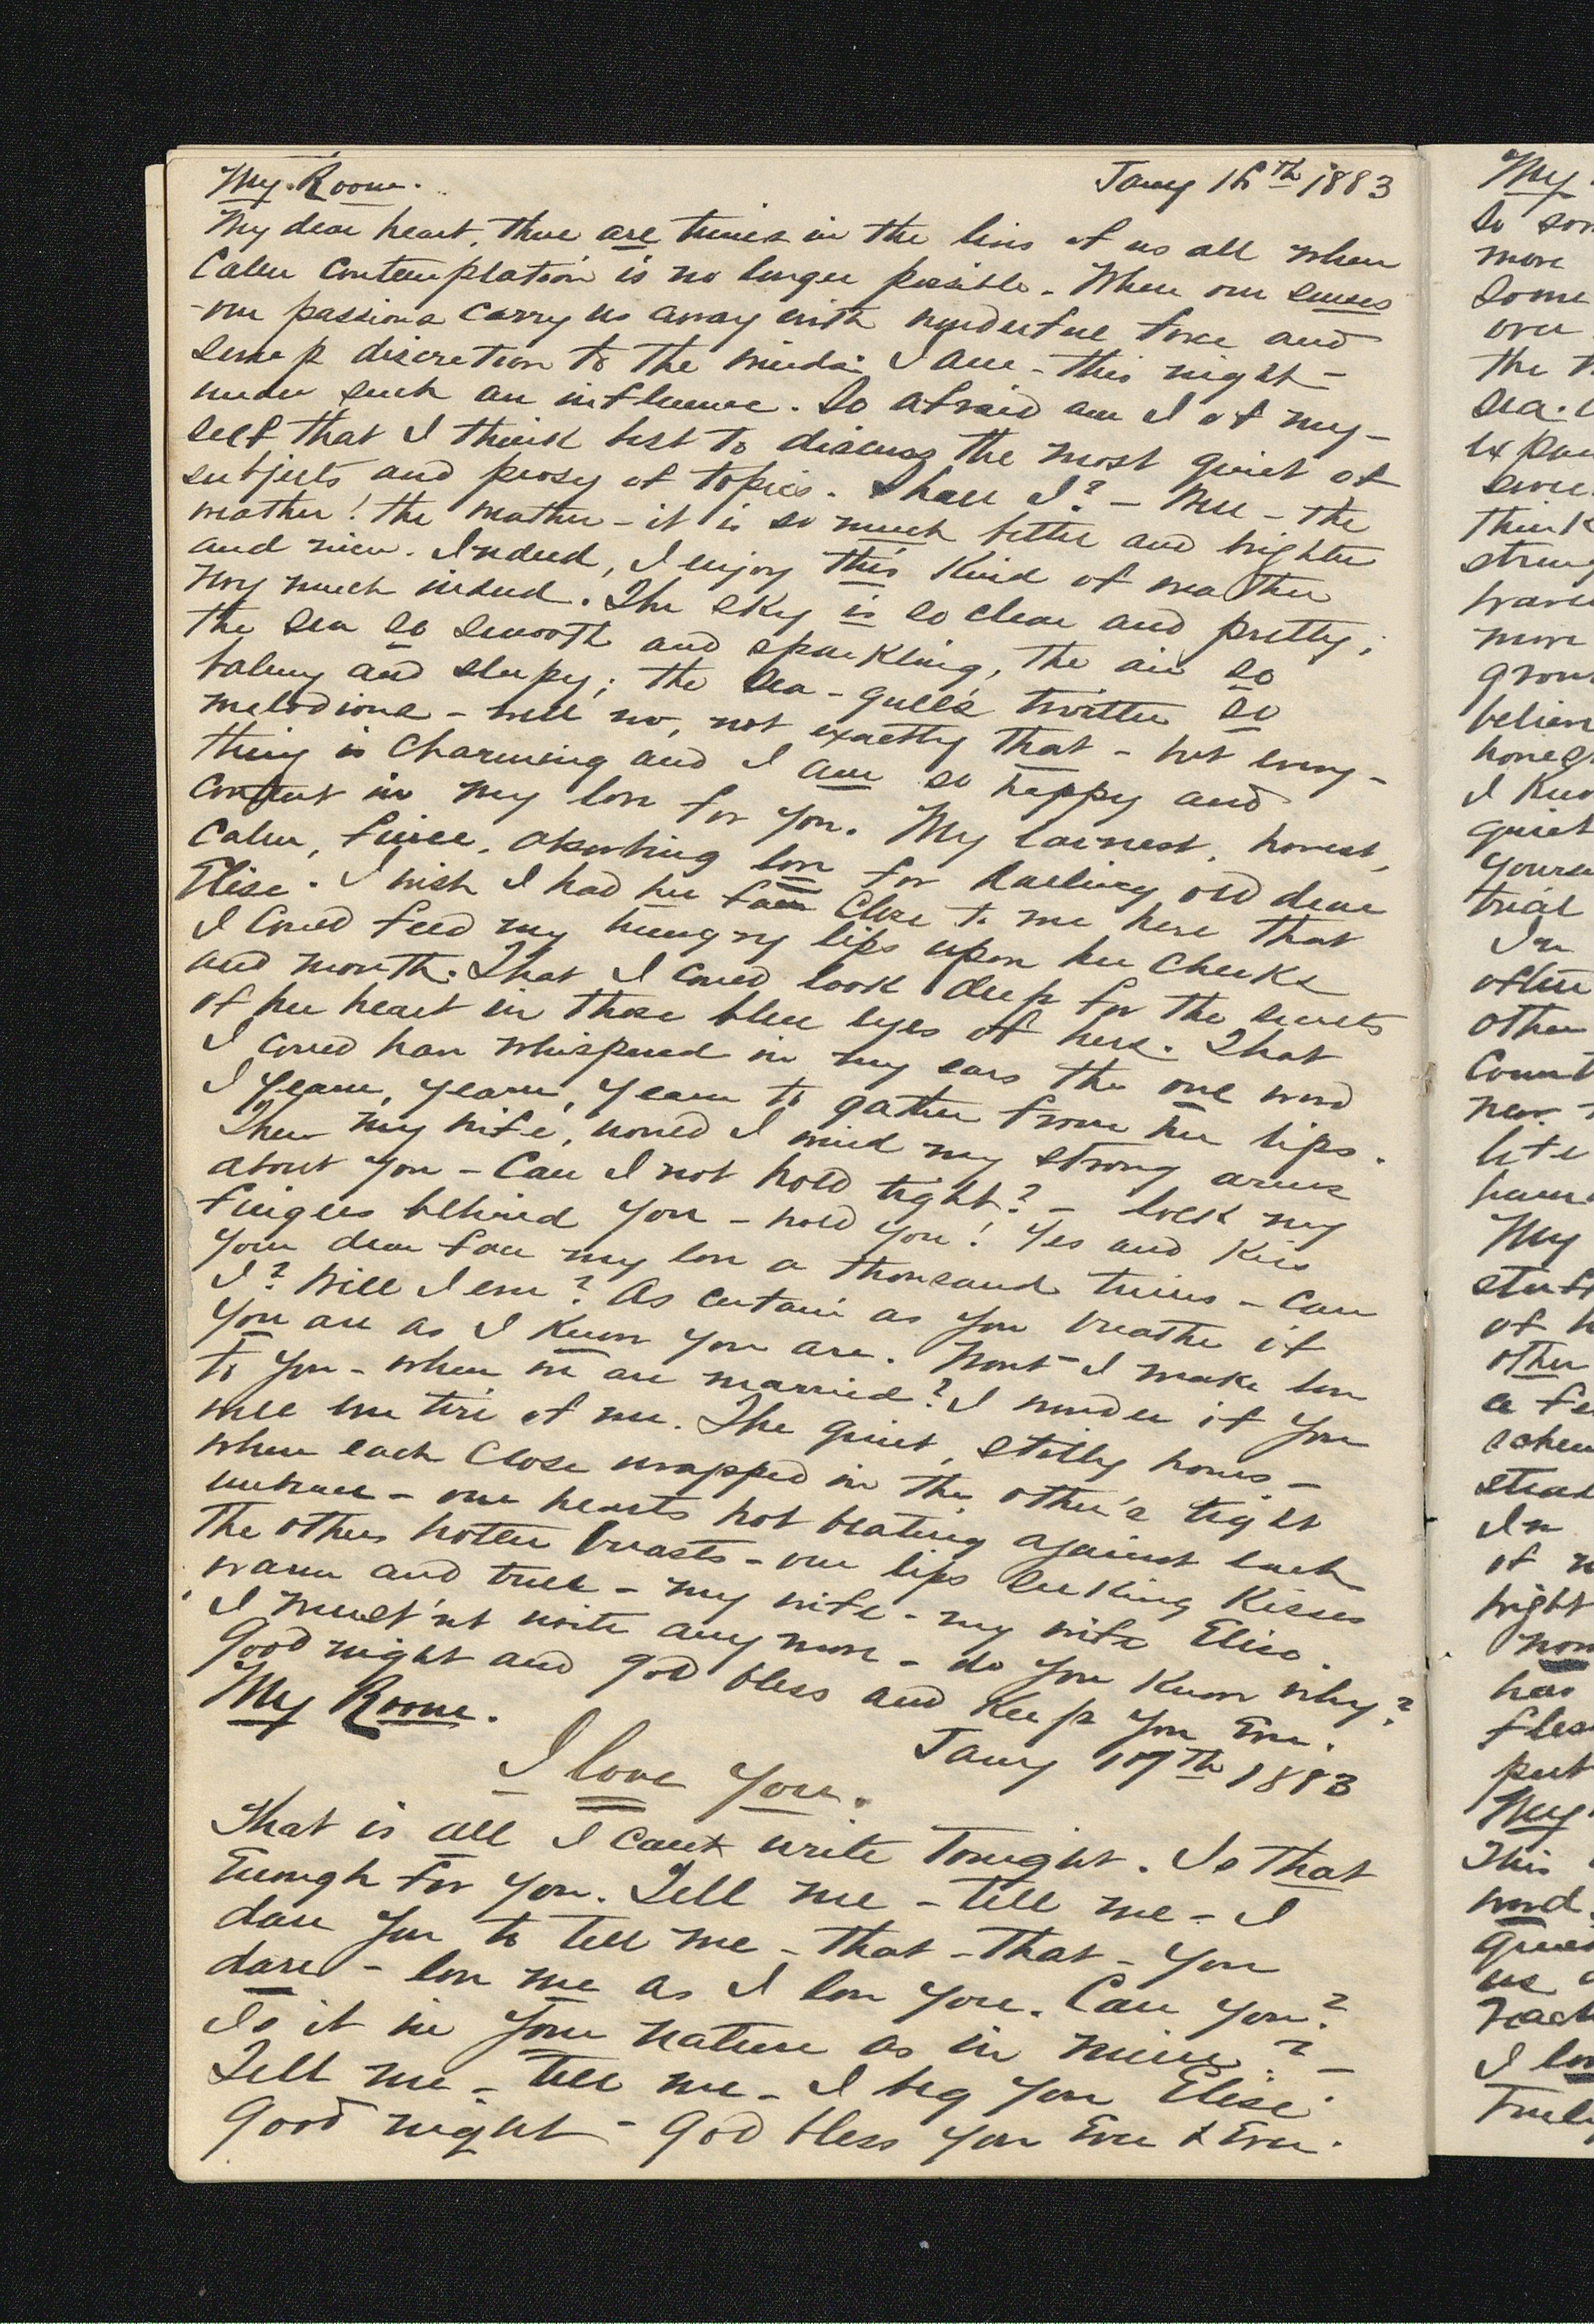 My Room. Jany 16th 1883
My dear heart, there are times in the lives of us all when
Calm Contemplation is no longer possible. When our senses
-our passions carry us away with wonderful force and
sweep discretion to the winds. I am - this night -
under such an influence. So afraid am I of my-
self that I think best to discuss the most quiet of
subjects and prosy of topics. Shall I? - Well - the
weather! the weather - it is so much better and brighter
and nicer. Indeed, I enjoy this kind of weather
very much indeed. The sky is so clear and pretty,
the sea so smooth and sparkling, the air so
balmy and sleepy; the sea-gulls twitter so
melodious - well no, not exactly that - but every-
thing is charming and I am so happy and
content in my love for you. My earnest, honest,
calm, fierce, absorbing love for darling old dear
Elise. I wish I had her face close to me here that
I could feed my hungry lips upon her cheeks
and mouth. That I could look deep for the secrets
of her heart in those blue eyes of hers. That
I could have whispered in my ears the one word
I yearn, yearn, yearn to gather from her lips.
Then my wife, would I wind my strong arms
about you - Can I not hold tight? - lock my
fingers behind you - hold you! Yes and kiss
your dear face my love a thousand times - Can
I? Will I ever? As certain as you breathe if
you are as I know you are. Wont I make love
to you - when we are married? I wonder if you
will ever tire of me. The quiet, stilly hours -
when each close wrapped in the other's tight
embrace - our hearts hot beating against each
the others hotter breasts - our lips seeking kisses
warm and true - my wife - my wife Elise.
I must'nt write any more - do you know why?
Good night and God bless and keep you Ever.
My Room. Jany 17th 1883
I love you.
That is all I can write tonight. Is that
Enough for you. Tell me - tell me - I
dare you to tell me - that - that - you
dare - love me as I love you. Can you?
Is it in your nature as in mine? -
Tell me - tell me - I beg you Elise.
Good night - God bless you Ever & Ever.